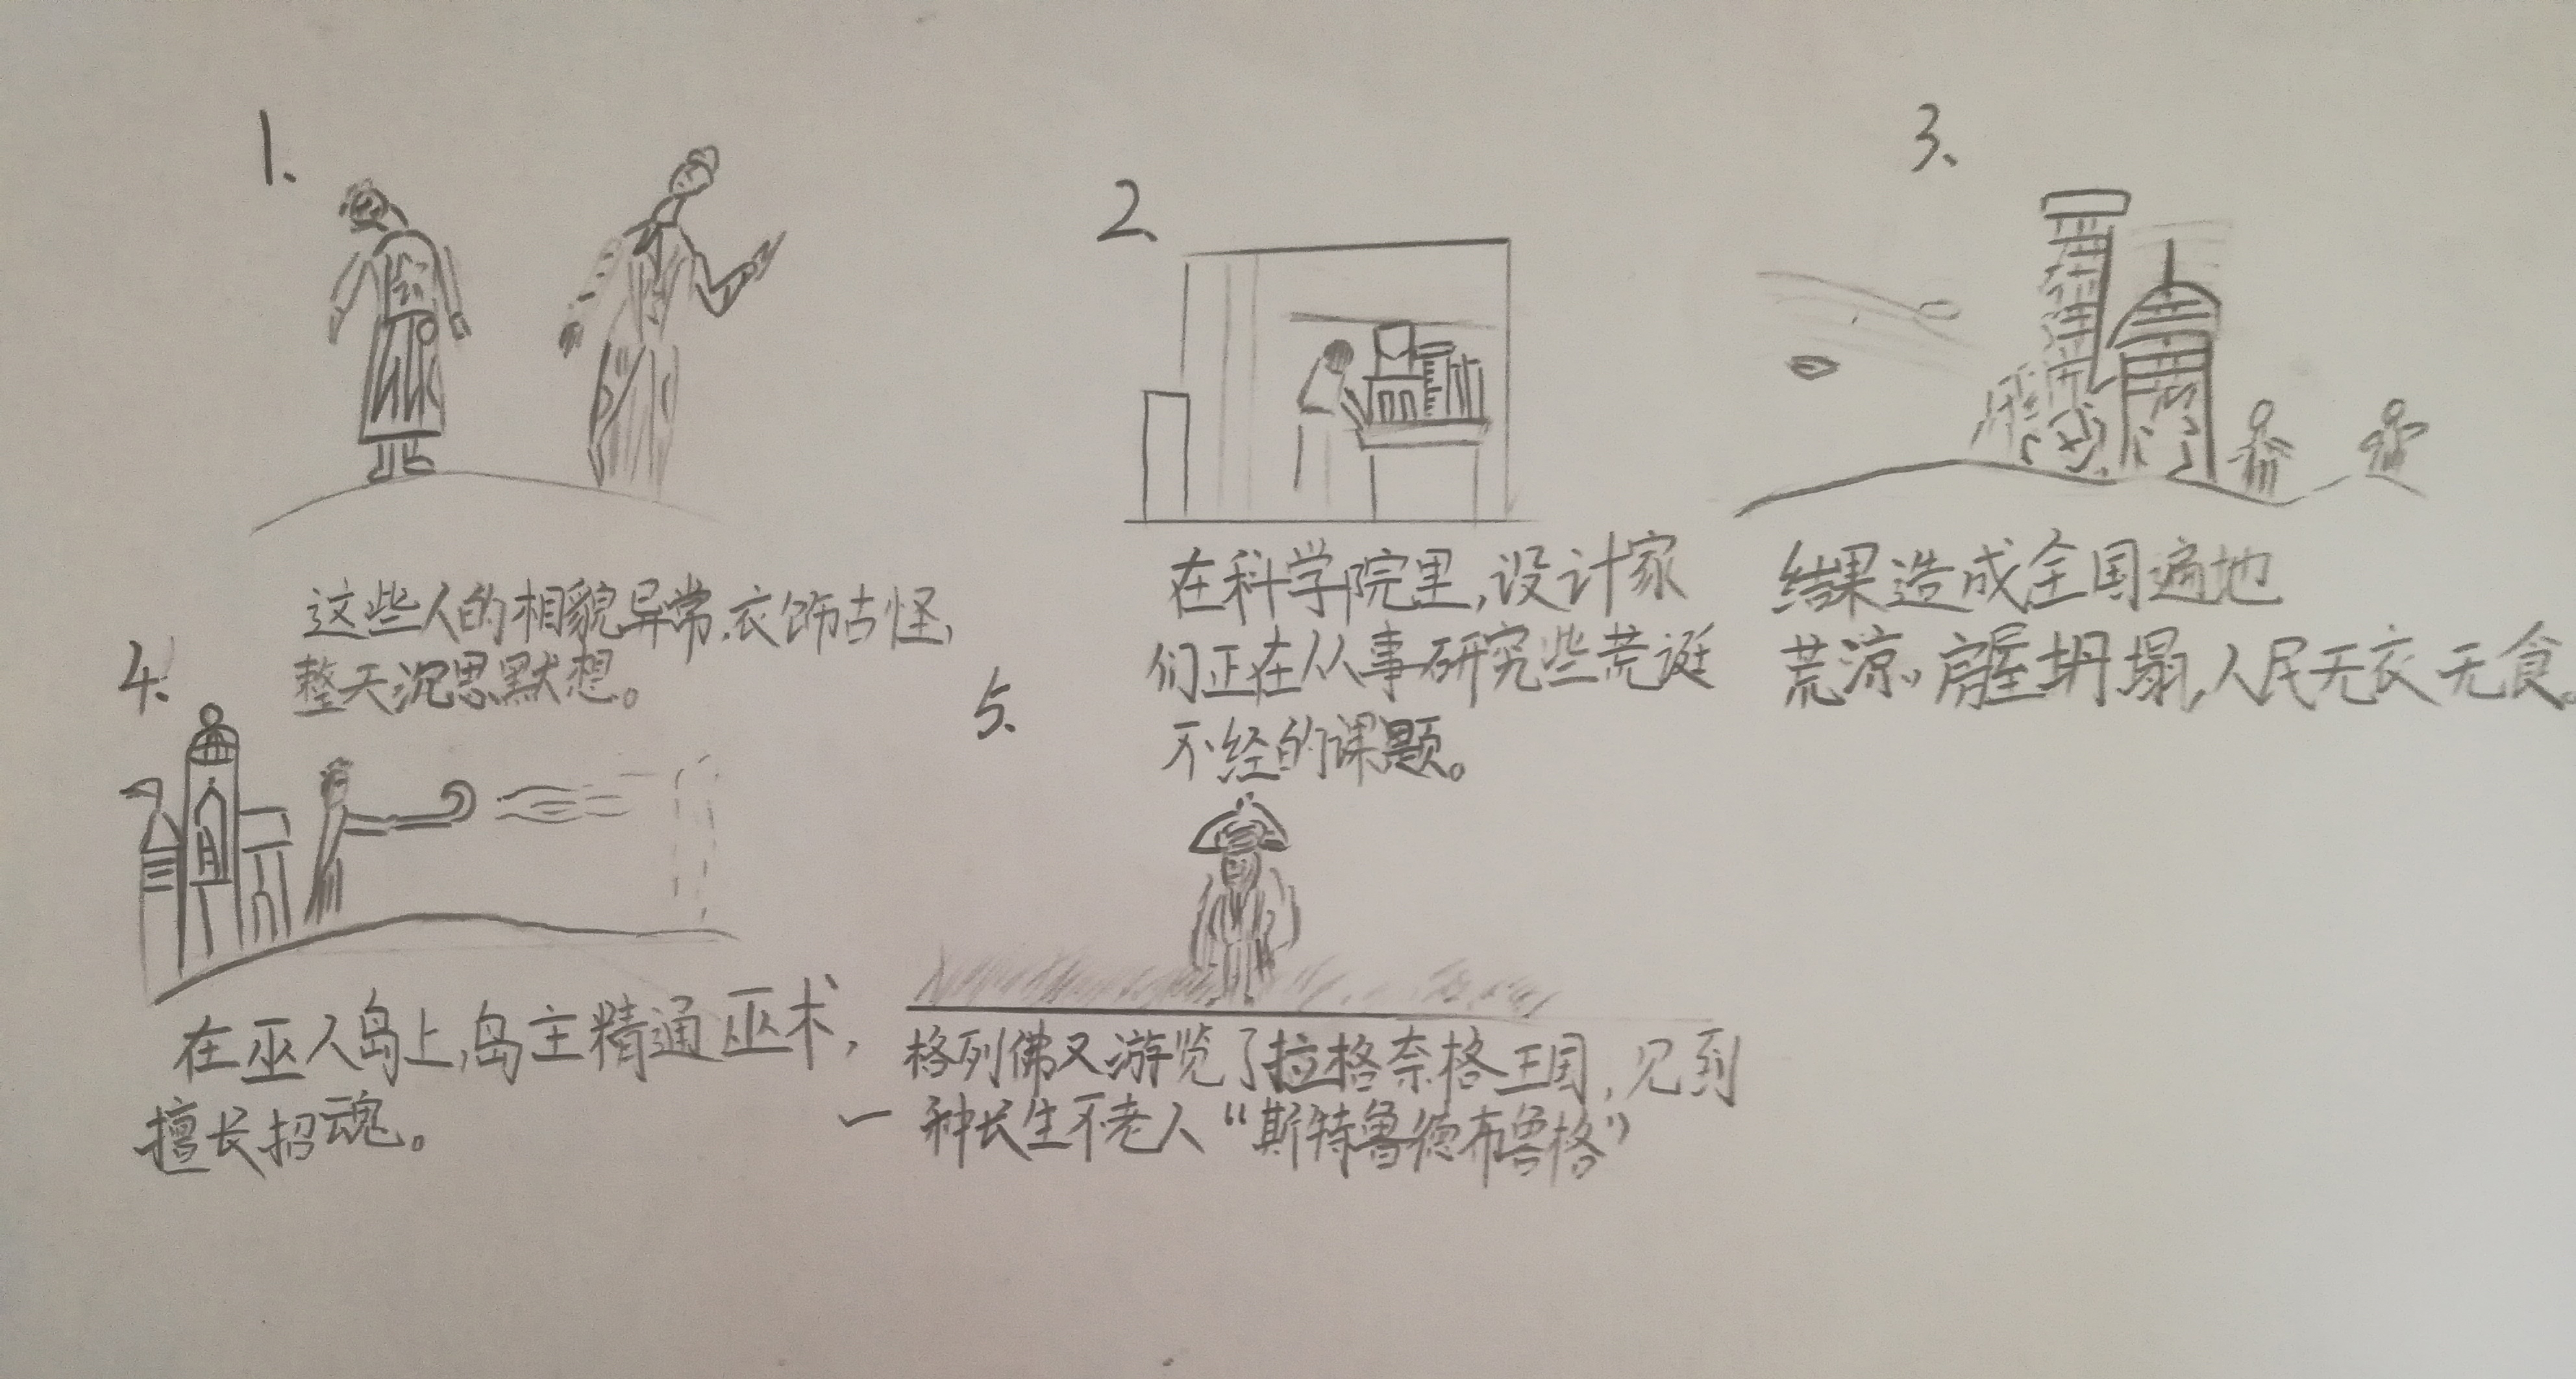 1、
这些人的相貌异常,衣饰古怪,
整天沉思默想。
2、
在科学院里,设计家
们正在从事研究些荒诞
不经的课题。
3、
结果造成全国遍地
荒凉,房屋坍塌,人民无衣无食。
4、
在巫人岛上,岛主精通巫术,
擅长招魂。
5、
格列佛又游览了拉格奈格王国,见到
一种长生不老人“斯特鲁德布鲁格”